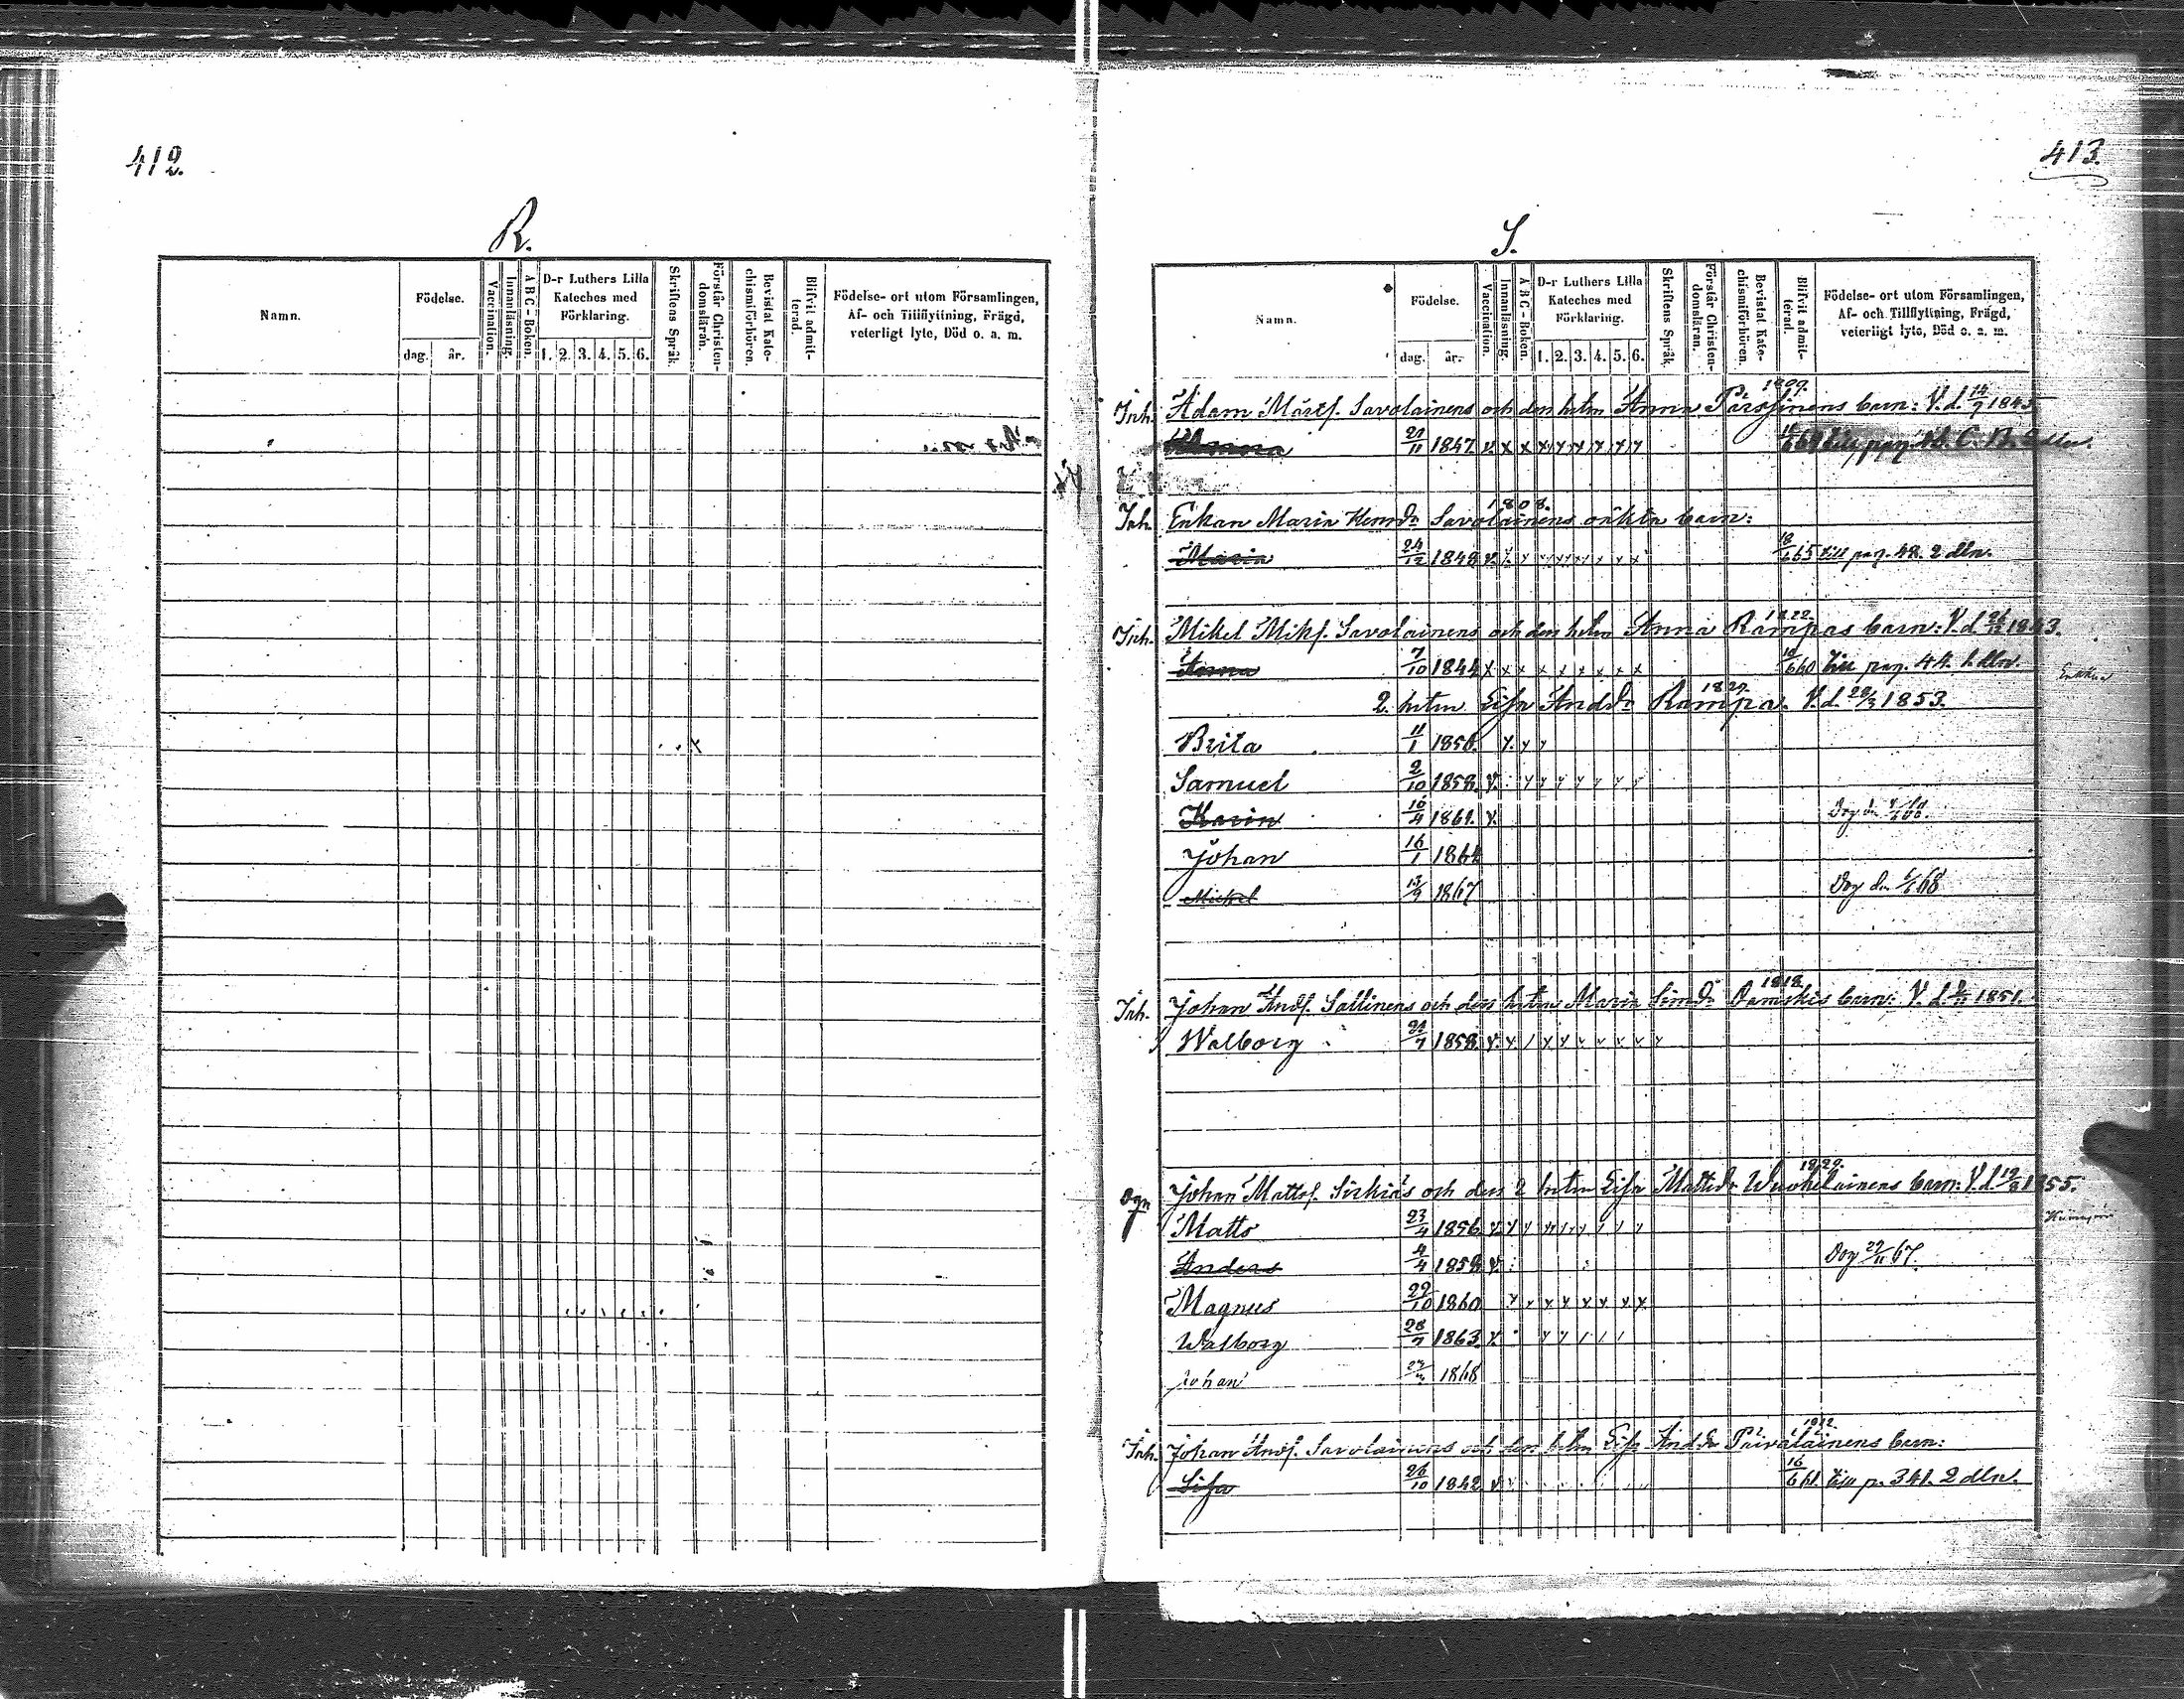 412.
R.
Namn.
Födelse.
dag. år.
Vaccination.
Innanläsning.
ABC-Boken.
D-r Luthers Lilla Kateches med Förklaring.
1. 2. 3. 4. 5. 6.
Skriftens Språk.
Förstår Christendomsläran.
Bevistat Katechismiförhören.
Blifvit admitterad.
Födelse- ort utom Församlingen,
Af- och Tillflyttning, Frägd,
veterligt lyte, Död o. a. m.
413.
S.
Namn.
Födelse.
dag. år.
Vaccination.
Innanläsning.
ABC-Boken.
D-r Luthers Lilla Kateches med Förklaring.
1. 2. 3. 4. 5. 6.
Skriftens Språk.
Förstår Christendomsläran.
Bevistat Katechismiförhören.
Blifvit admitterad.
Födelse- ort utom Församlingen,
Af- och Tillflyttning, Frägd,
veterligt lyte, Död o. a. m.
Inh. Adam Märtf. Savolainens och dess hstru Anna Pärssinens barn: V. d. 14/7 1845
11 1847 v. x x x x x x x x till pag.
1808.
Inh. Enkan Maria Henrdr Savolainens oäkta barn:
Maria 24/12 1848 v. x x x x x x x x 18/6 65 till pag. 48. 2 dln.
1822.
Inh. Mikel Mikf. Savolainens och dess hstru Anna Rampas barn: V. d. 1843.
Anna 7/10 1844 x x x x x x x x x 10/6 60 till pag. 44. 1. dln.
1829.
2. hstru Lisa Anddr Rampa. V. d. 28/3 1853.
Brita 11/1 1856. x. x x
Samuel 2/10 1858. v. x x x x x x x
Karin 10/4 1861. v. Dog d.
Johan 16/1 1864
Mickel 13/9 1867 Dog d. 68
1818.
Inh. Johan Andf. Sallinens och dess hstru Maria Simdr barn: V. d. 1851.
Walborg 7 1858. v. x. / x x x x x x x
1829.
Johan Mattsf. Sirkiäs och dess 2 hstru Lisa Mattsdr Wuokelainens barn: V. d. 19/8 1855.
Matts 23/4 1856. v. x x x x x x x x
Anders 4/4 1858. v. Dog 29/11 67.
Magnus 29/10 1860 x x x x x x x x
Walborg 28/7 1863. x. x x / / /
Johan 1868
1812.
Inh. Johan Andf. Savolainens och dess hstru Lisa Anddr Päiväläinens barn:
Lisa 26/10 1842 v. 16/6 61. till p. 341. 2 dln.